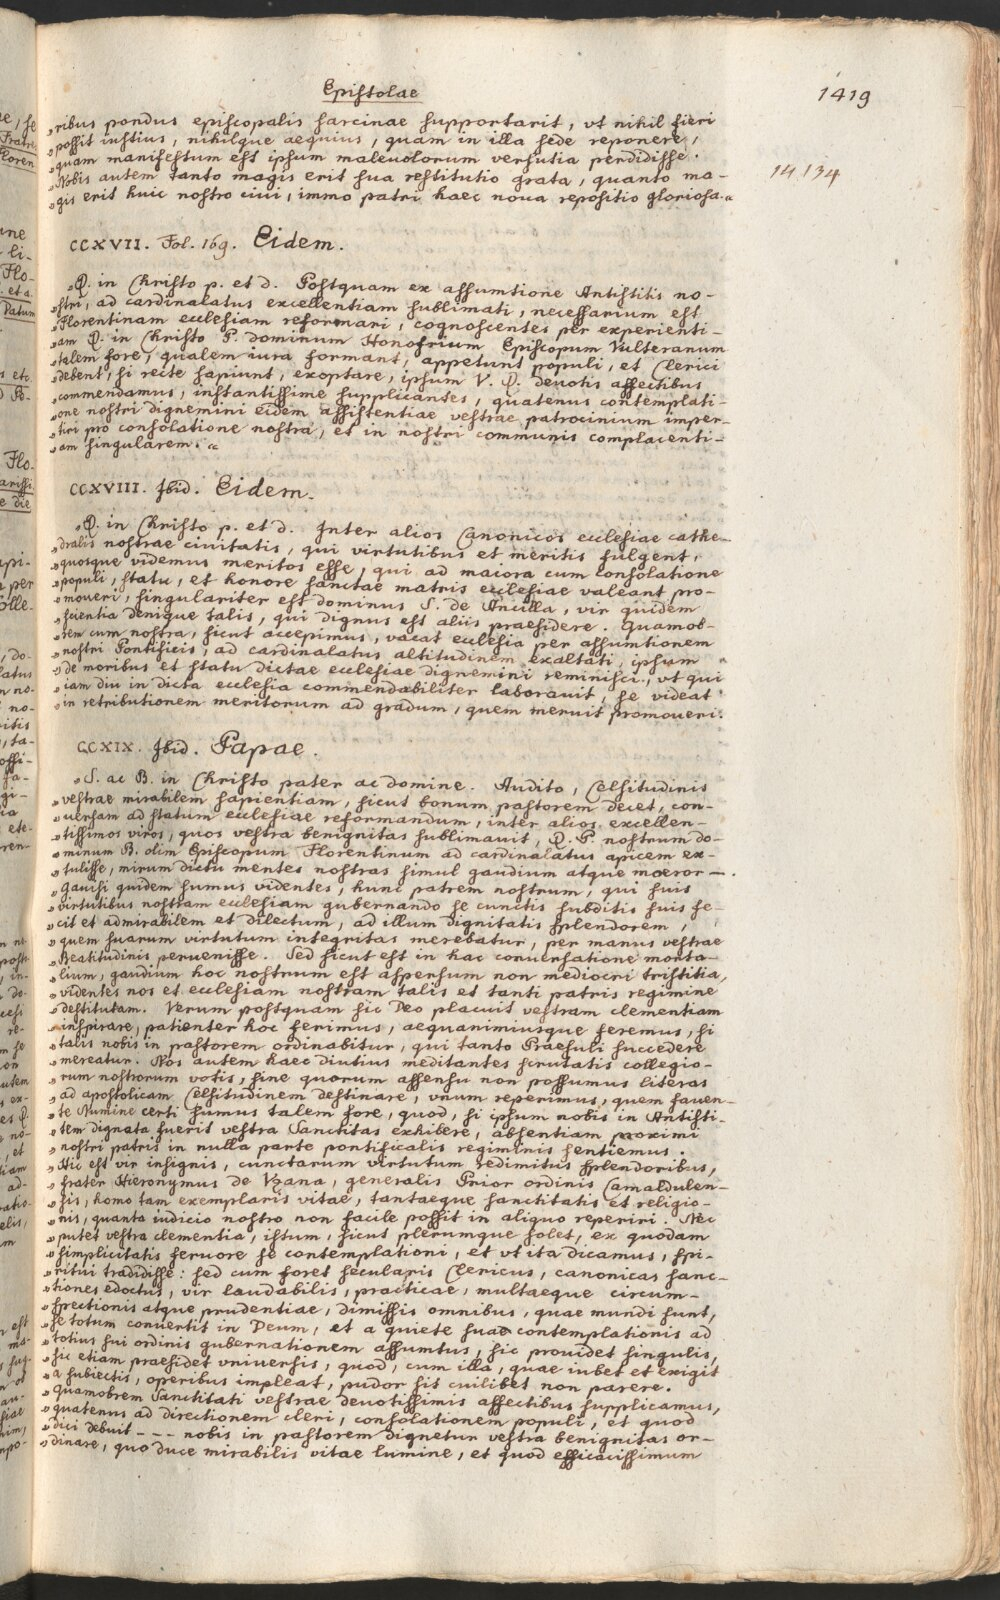 Epistolae
1419
„ribus pondus episcopalis sarcinae supportarit, vt nihil fieri
„possit iustius, nihilque aequius, quam in illa sede reponere,
„quam manifestum est ipsum maleuolorum versutia perdidisse.
„Nobis autem tanto magis erit sua restitutio grata, quanto ma-
„gis erit huic nostro ciui, immo patri haec noua repositio gloriosa.“
14134
CCXVII. Fol. 169. Eidem.
„R. in Christo p. et d. Postquam ex assumtione Antistitis no-
„stri, ad cardinalatus excellentiam sublimati, necessarium est
„Florentinam ecclesiam reformari, cognoscentes per experienti-
„am R. in Christo P. dominum Honofrium Episcopum Vulteranum
„talem fore, qualem iura formant, appetunt populi, et Clerici
„debent, si recte sapiunt, exoptare, ipsum V. R. deuotis affectibus
„commendamus, instantissime supplicantes, quatenus contemplati-
„one nostri dignemini eidem assistentiae vestrae patrocinium imper-
„tiri pro consolatione nostra, et in nostri communis complacenti-
„am singularem.“
CCXVIII. Ibid. Eidem.
„R. in Christo p. et d. Inter alios Canonicos ecclesiae cathe-
„dralis nostrae ciuitatis, qui virtutibus et meritis fulgent,
„quosque videmus meritos esse, qui ad maiora cum consolatione
„populi, statu, et honore sanctae matris ecclesiae valeant pro-
„moueri, singulariter est dominus S. de Ancilla, vir quidem
„scientia denique talis, qui dignus est aliis praesidere. Quamob-
„rem cum nostra, sicut accepimus, vacat ecclesia per assumtionem
„nostri Pontificis, ad cardinalatus altitudinem exaltati, ipsum
„de moribus et statu dictae ecclesiae dignemini reminisci, vt qui
„iam diu in dicta ecclesia commendabiliter laborauit, se videat
„in retributionem meritorum ad gradum, quem meruit promoueri.“
CCXIX. Ibid. Papae.
„S. ac B. in Christo pater ac domine. Audito, Celsitudinis
„vestrae mirabilem sapientiam, sicut bonum pastorem decet, con-
„uersam ad statum ecclesiae reformandum, inter alios excellen-
„tissimos viros, quos vestra benignitas sublimauit, R. P. nostrum do-
„minum B. olim Episcopum Florentinum ad cardinalatus apicem ex-
„tulisse, mirum dictu mentes nostras simul gaudium atque moeror —.
„Gauisi quidem sumus videntes, hunc patrem nostrum, qui suis
„virtutibus nostram ecclesiam gubernando se cunctis subditis suis fe-
„cit et admirabilem et dilectum, ad illum dignitatis splendorem,
„quem suarum virtutum integritas merebatur, per manus vestrae
„Beatitudinis peruenisse. Sed sicut est in hac conuersatione morta-
„lium, gaudium hoc nostrum est aspersum non mediocri tristitia,
„videntes nos et ecclesiam nostram talis et tanti patris regimine
„destitutam. Verum postquam sic Deo placuit vestram clementiam
„inspirare, patienter hoc ferimus, aequanimiusque feremus, si
„talis nobis in pastorem ordinabitur, qui tanto Praesuli succedere
„mereatur. Nos autem haec diutius meditantes scrutatis collegio-
„rum nostrorum votis, sine quorum assensu non possumus literas
„ad apostolicam Celsitudinem destinare, vnum reperimus, quem fauen-
„te Numine certi sumus talem fore, quod, si ipsum nobis in Antisti-
„tem dignata fuerit vestra Sanctitas exhibere, absentiam proximi
„nostri patris in nulla parte pontificalis regiminis sentiemus.
„Hic est vir insignis, cunctarum virtutum redimitus splendoribus,
„frater Hieronymus de Vzana, generalis Prior ordinis Camaldulen-
„sis, homo tam exemplaris vitae, tantaeque sanctitatis et religio-
„nis, quanta iudicio nostro non facile possit in aliquo reperiri. Nec
„putet vestra clementia, istum, sicut plerumque solet, ex quodam
„simplicitatis feruore se contemplationi, et vt ita dicamus, spi-
„ritui tradidisse: sed cum foret secularis Clericus, canonicas sanc-
„tiones edoctus, vir laudabilis, practicae, multaeque circum-
„spectionis atque prudentiae, dimissis omnibus, quae mundi sunt,
„se totum conuertit in Deum, et a quiete suae contemplationis ad
„totius sui ordinis gubernationem assumtus, sic prouidet singulis,
„sic etiam praesidet vniuersis, quod, cum illa, quae iubet et exigit
„a subiectis, operibus impleat, pudor sit cuilibet non parere.
„Quamobrem Sanctitati vestrae deuotissimis affectibus supplicamus,
„quatenus ad directionem cleri, consolationem populi, et quod
„dici debuit - - - nobis in pastorem dignetur vestra benignitas or-
„dinare, quo duce mirabilis vitae lumine, et quod efficacissimum